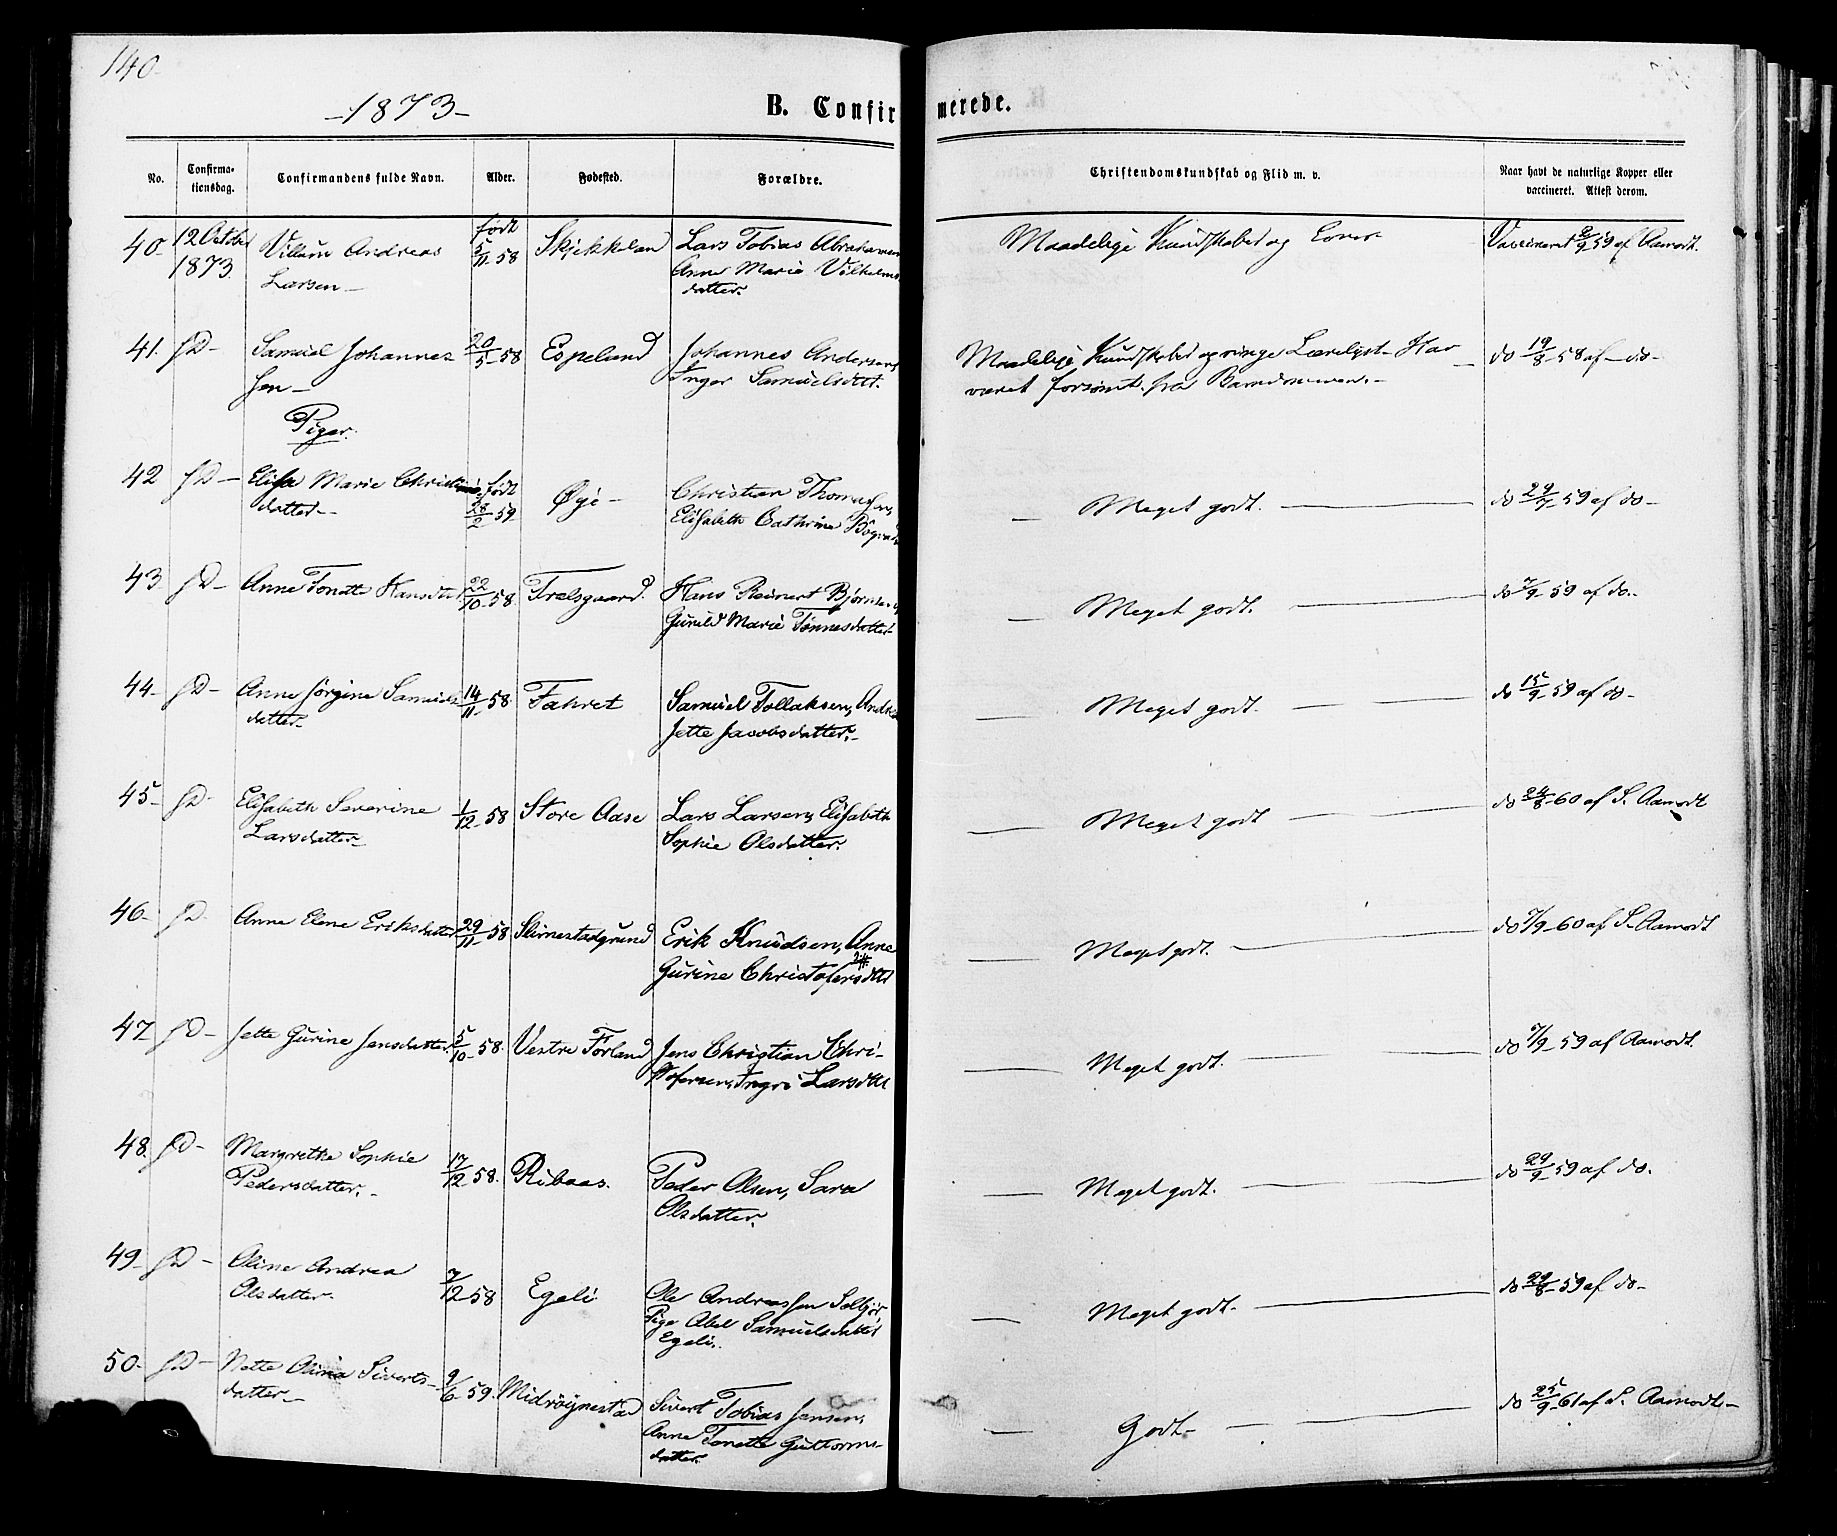 140
-1873-
B. Confirmerede.
No.
Confirmationsdag.
Confirmandens fulde Navn.
Alder.
Fødested.
Forældre.
Christendomskundskab og Flid m. v.
Naar havt de naturlige Kopper eller vaccineret. Attest derom.
40. 12 October 1873. Villum Andreas Larsen - født 5/11 58 Lars Tobias Anne Marie Vilhelms datter. Maadelige Kundskaber og Vaccineret 59 af Aamodt.
41. D- Samuel Johannes sen - 20/5 58 Espeland Johannes Anders Inger Samuelsdatt. Maadelige Kundskaber og ringe Lærelyst - Har været forsømt fra do 19/8 58 af - do -
Piger.
42 D - Marie datter - født 28/2 59 Øye - Christian Elisabeth Cathrine - Meget godt. do 59 af do -
43 D - Anne Tonette Hansdtr 22/10 58. Trælsgaard. Hans Reinert Gunild Marie Tønnesdatter - Meget godt. do 59 af do.
44 - D - Anne Jørgine Samuels datter - 14/11 58 Samuel Tollaksen, Jette Jacobsdatter. - Meget godt. do 15/9 59 af do -
45 - D - Elisabeth Severine Larsdatter - 1/12 58 Store Aase Lars Larsen, Elisabeth Sophie Olsdatter. - Meget godt do 24/8 60 af S. Aamodt
46 - D. Anne Elene Eriksdatter 29/11 58 Erik Knudsen, Anne Gurine Christofersdtt - Meget godt. do 60 af S. Aamodt
47 D - Jette Gurine Jensdatter. 5/10 58. Vestre Førland Jens Christian Chri- stofersen, Ingri Larsdtt - Meget godt. do 59 af Aamodt.
48. D - Margrethe Sophie Pedersdatter. - 17/12 58. Ribaas. Peder Olsen, Sara Olsdatter. - Meget godt. do 29/9 59 af do.
49 - D - Oline Andrea Olsdatter. 7/12 58 Egeli Ole Andreassen Pige Abel Samuelsdatter Egeli. - Meget godt - do 29/8 59 af do -
50 - D - Nette Siverts- datter - 9/6 59. Midrøynestad Sivert Tobias Jensen, Anne Tonette Guttorms- datter. - Godt - do 25/9 61 af S. Aamodt -